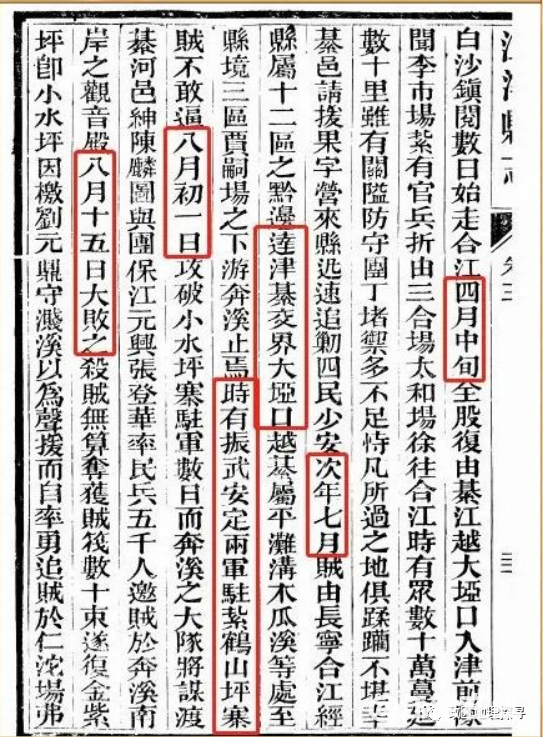 江津縣志
卷三
白沙鎮閱數日始走合江四月中旬全股復由綦江越大埡口入津前隊
聞李市場紮有官兵折由三合場太和場徐往合江時有眾數十萬蔓延
數十里雖有關隘防守團丁堵禦多不足恃凡所過之地俱蹂躪不堪至
綦邑請援果字營來縣迅速追勦四民少安次年七月賊由長寧合江經
縣屬十二區之黔邊達津綦交界大埡口越綦屬平灘溝木瓜溪等處至
縣境三區賈嗣場之下游奔溪止焉時有振武安定兩軍駐紮鶴山坪寨
賊不敢逼八月初一日攻破小水坪寨駐軍數日而奔溪之大隊將謀渡
綦河邑紳陳麟圖與團保江元興張登華率民兵五千人邀賊於奔溪南
岸之觀音殿八月十五日大敗之殺賊無算奪獲賊筏數十束遂復金紫
坪卽小水坪因檄劉元鼎守濺溪以為聲援而自率勇追賊於仁沱場弗